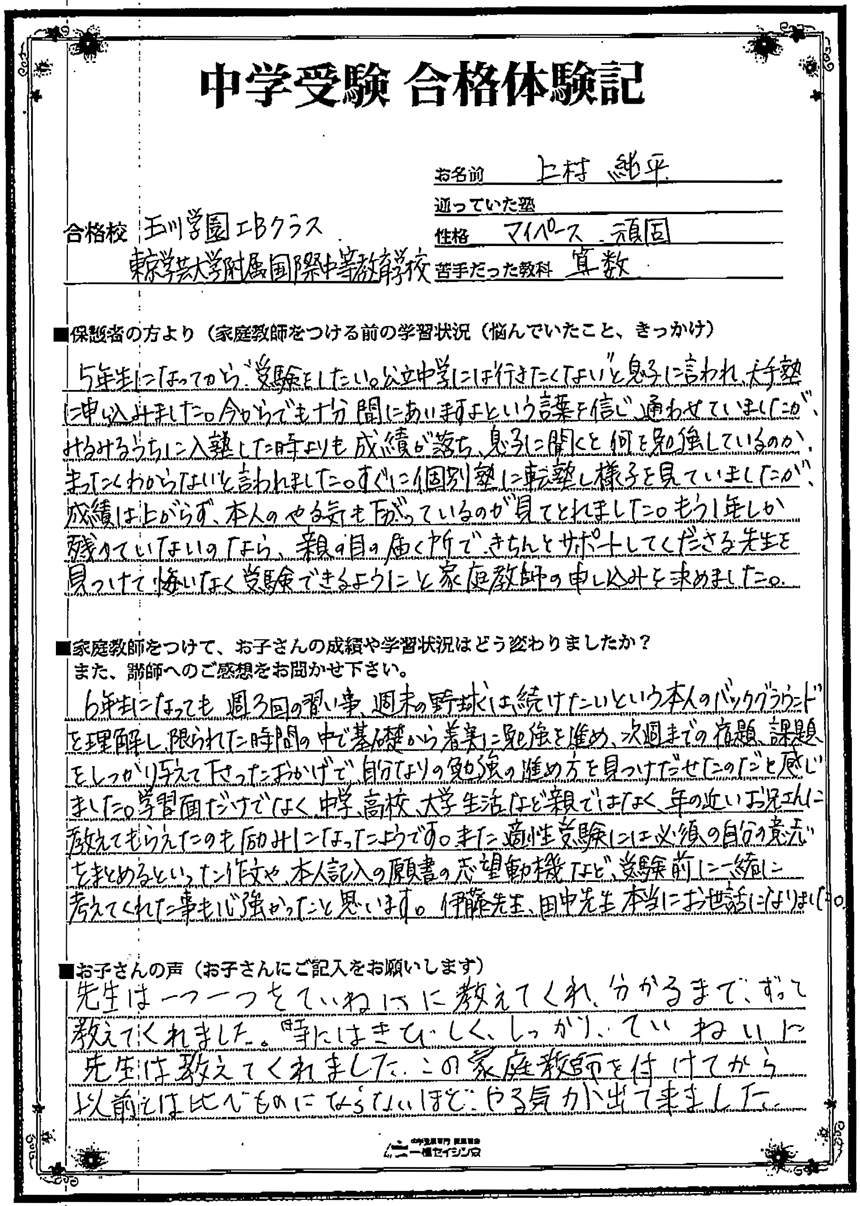 中学受験 合格体験記
お名前 上村 純平
通っていた塾
合格校 玉川学園IBクラス
性格 マイペース 頑固
東京学芸大学附属国際中等教育学校
苦手だった教科 算数
■保護者の方より（家庭教師をつける前の学習状況（悩んでいたこと、きっかけ）
5年生になってから“受験をしたい。公立中学には行きたくない”と息子に言われ、大手塾
に申し込みました。今からでも十分間にあいますよという言葉を信じ、通わせていましたが、
みるみるうちに入塾した時よりも成績が落ち、息子に聞くと何を勉強しているのか、
まったくわからないと言われました。すぐに個別塾に転塾し様子を見ていましたが、
成績は上がらず、本人のやる気も下がっているのが見てとれました。もう1年しか
残っていないのなら、親の目の届く所で、きちんとサポートしてくださる先生を
見つけて悔いなく受験できるようにと家庭教師の申し込みを決めました。
■家庭教師をつけて、お子さんの成績や学習状況はどう変わりましたか？
また、講師へのご感想をお聞かせ下さい。
6年生になっても週3回の習い事、週末の野球は、続けたいという本人のバックグラウンド
を理解し、限られた時間の中で基礎から着実に勉強を進め、次週までの宿題、課題
をしっかり与えて下さったおかげで、自分なりの勉強の進め方を見つけだせたのだと感じ
ました。学習面だけでなく、中学、高校、大学生活など親ではなく、年の近いお兄さんに
教えてもらえたのも励みになったようです。また、適性受験には必須の自分の意見
をまとめるといった作文や、本人記入の願書の志望動機など、受験前に一緒に
考えてくれた事も心強かったと思います。伊藤先生、田中先生本当にお世話になりました。
■お子さんの声（お子さんにご記入をお願いします）
先生は一つ一つをていねいに教えてくれ、分かるまで、ずって
教えてくれました。時にはきびしく、しっかり、ていねいに
先生は教えてくれました。この家庭教師を付けてから
以前とは比べものにならないほど、やる気が出て来ました。
中学受験専門 家庭教師
一橋セイシン会